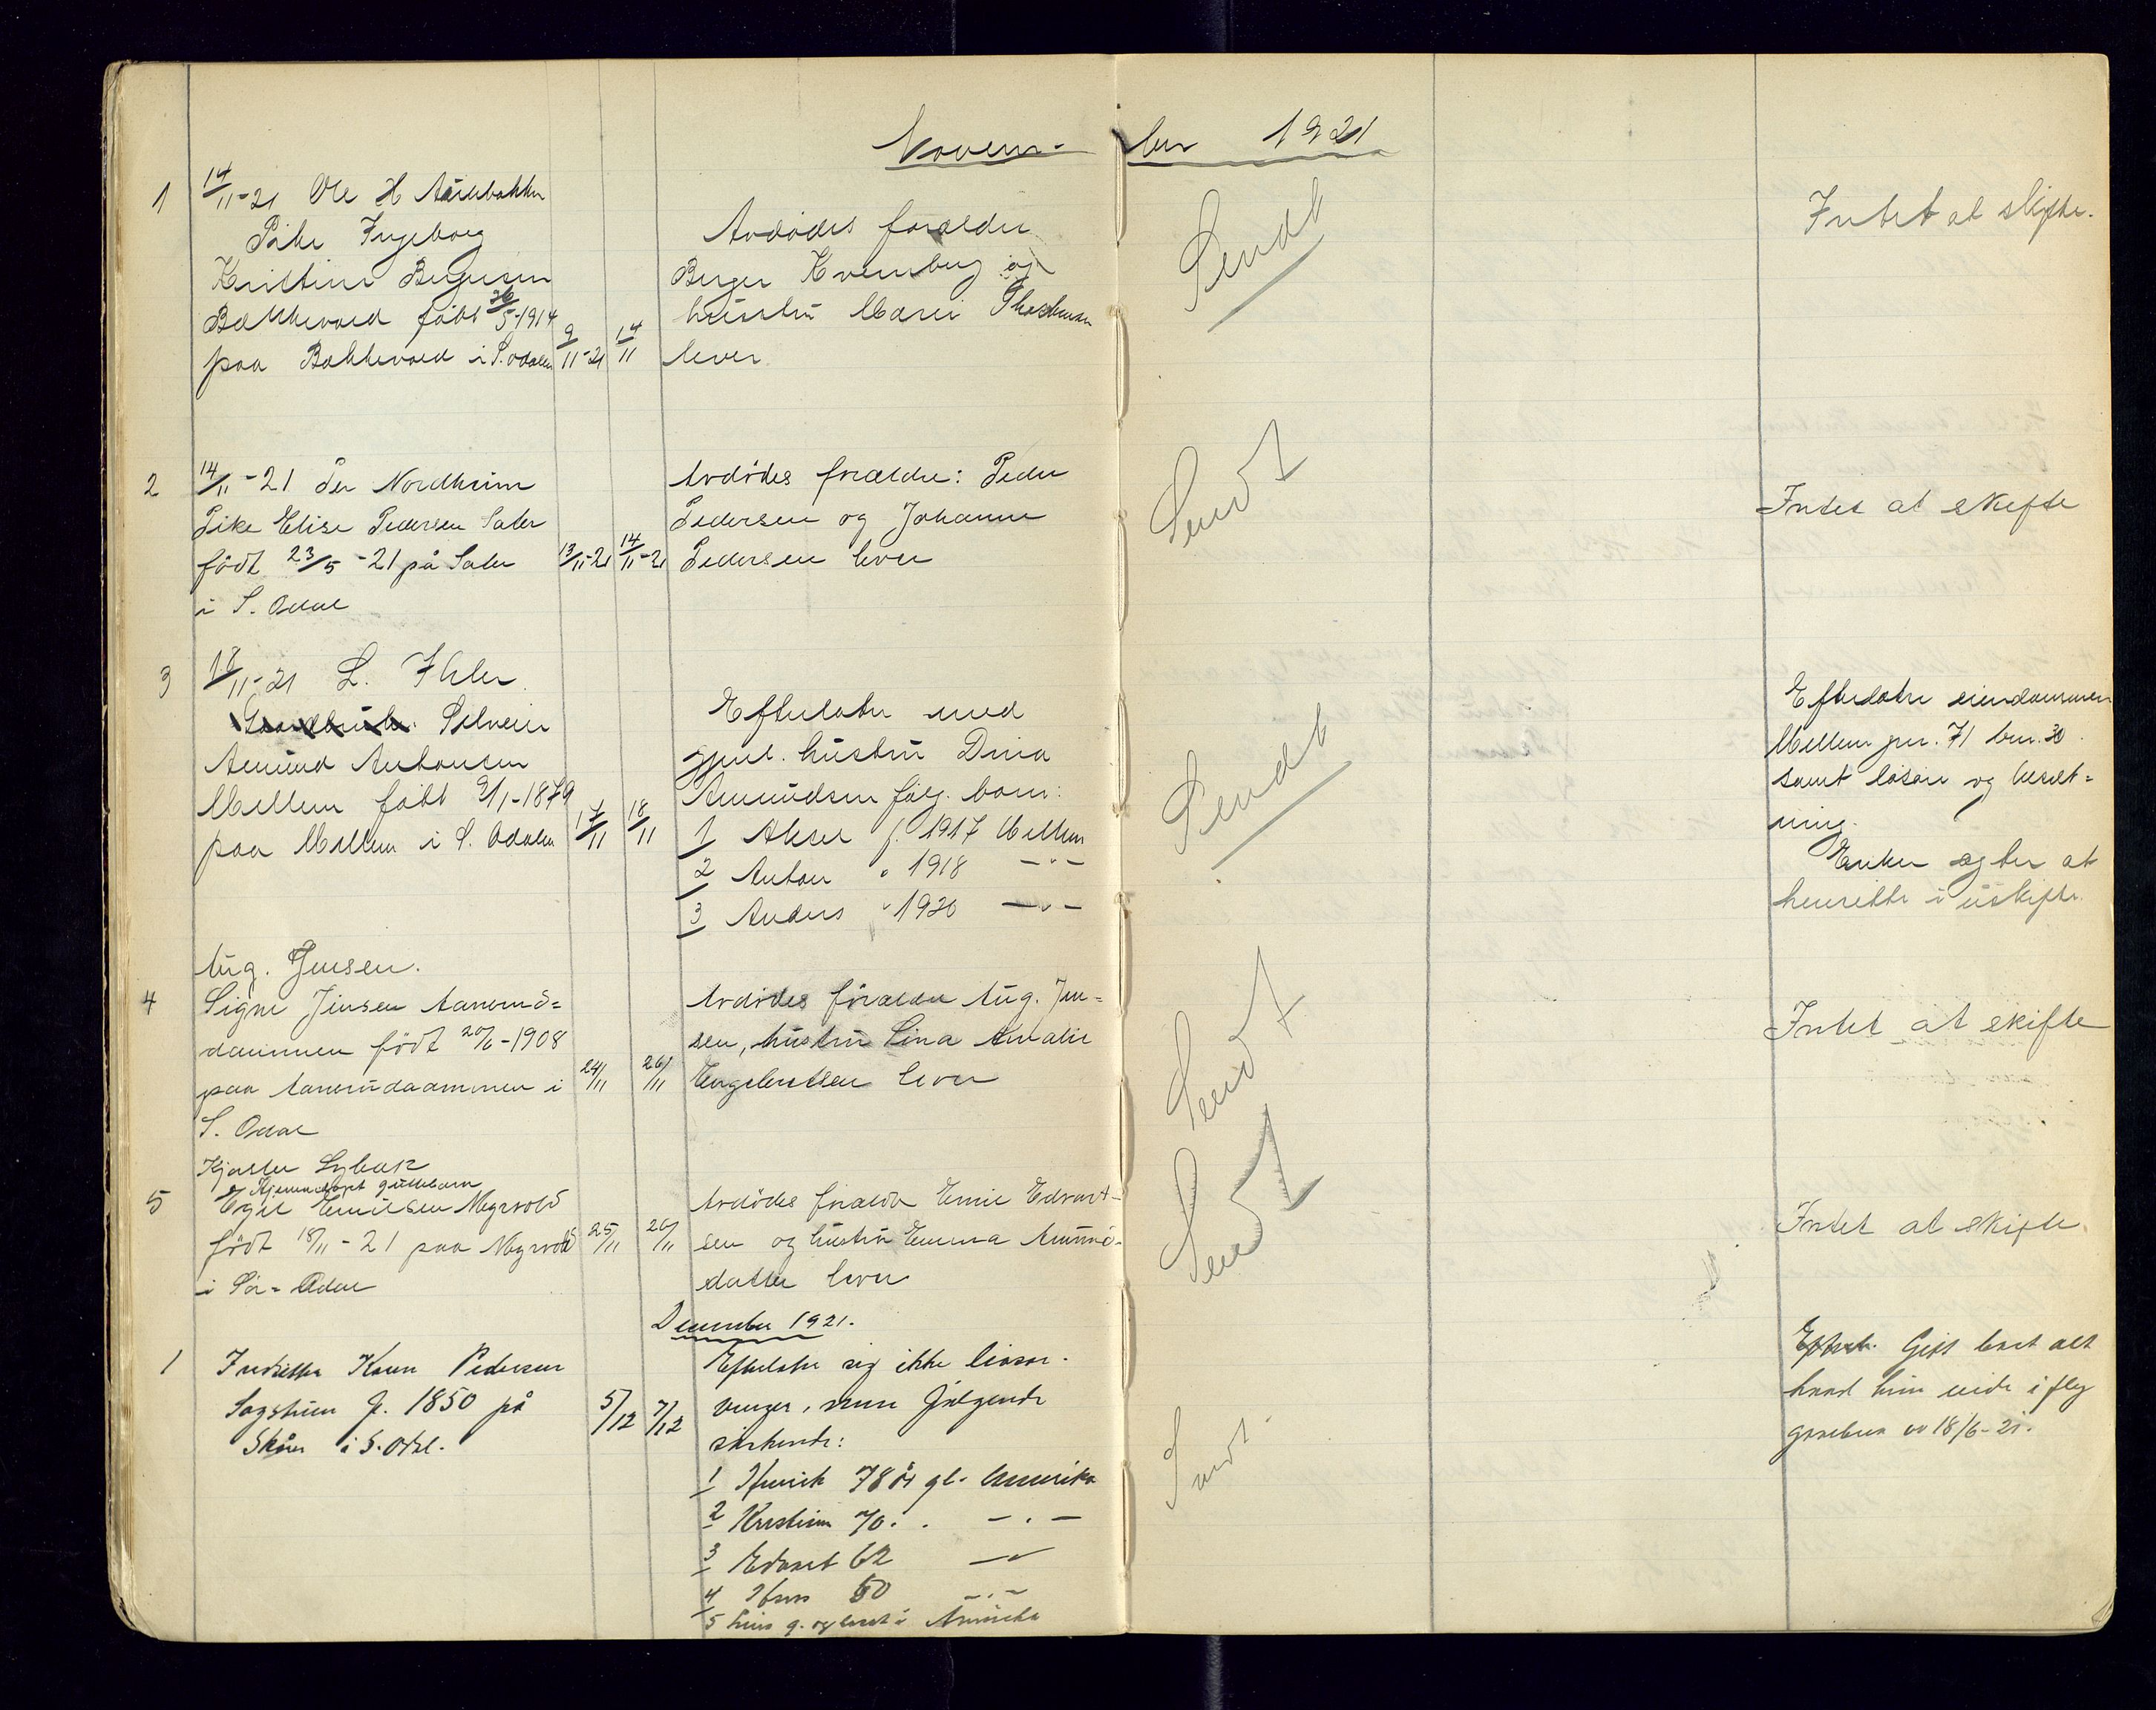 Novem- ber 1921
1 14/11-21 Ole H
Pike Ingeborg
Kristine Bergersen
Bakkevold født 26/5-1914
paa Bakkevold i S. Odalen 9/11-21 14/11
Avdødes forældre
Berger Kvernberg og
hustru Maren
lever.
Sendt
Intet at skifte.
2 14/11-21 Per Nordheim
Pike Elise Pedersen Sater
født 23/5-21 på Sater 13/11-21 14/11-21
i S. Odal
Avdødes forældre: Peder
Pedersen og Johanne
Pedersen lever
Sendt
Intet at skifte
3 18/11-21 L. Ihler
Selveier
Amund Antonsen
Mellem født 9/1-1879
paa Mellem i S. Odalen 17/11 18/11
Efterlater med
gjenl. hustru Dina
Amundsen følg. barn:
1 Aksel f. 1917 Mellem
2 Anton " 1918 -"-
3 Anders " 1920 -"-
Sendt
Efterlater eiendommen
Mellem gnr. 71 bnr. 30
samt løsøre og besæt=
ning.
Enken agter at
hensitte i uskifte.
Aug. Jensen.
4 Signe Jensen Aanerud=
dammen født 20/6-1908
paa Aaneruddammen i 24/11 26/11
S. Odal
Avdødes forældre Aug. Jen=
sen, hustru Lina Amalie
Engebretsen lever
Sendt
Intet at skifte
Kjøster Sybak
Hjemmedøpt guttebarn
5 Egil Emilsen Myrvold
født 18/11-21 paa Myrvold 25/11 26/11
i Sør=Odal
Avdødes forældre Emil Edvart-
sen og hustru Emma Amund-
datter lever
Sendt
Intet at skifte.
December 1921.
1 Karen Pedersen
Sagstuen f. 1850 på 5/12 7/12
Skåra i S. Odal.
Efterlater sig ikke livsar-
vinger, men følgende
søskende:
1 Henrik 78 år gl. Amerika
2 Kristian 70 " " -"-
3 Edvart 62 -"-
4 Hans 50 -"-
5 Lina g. og bosat i Amerika
Sendt
Efterl. Gitt bort alt
hvad hun eide i flg
gavebrev av 18/6-21.